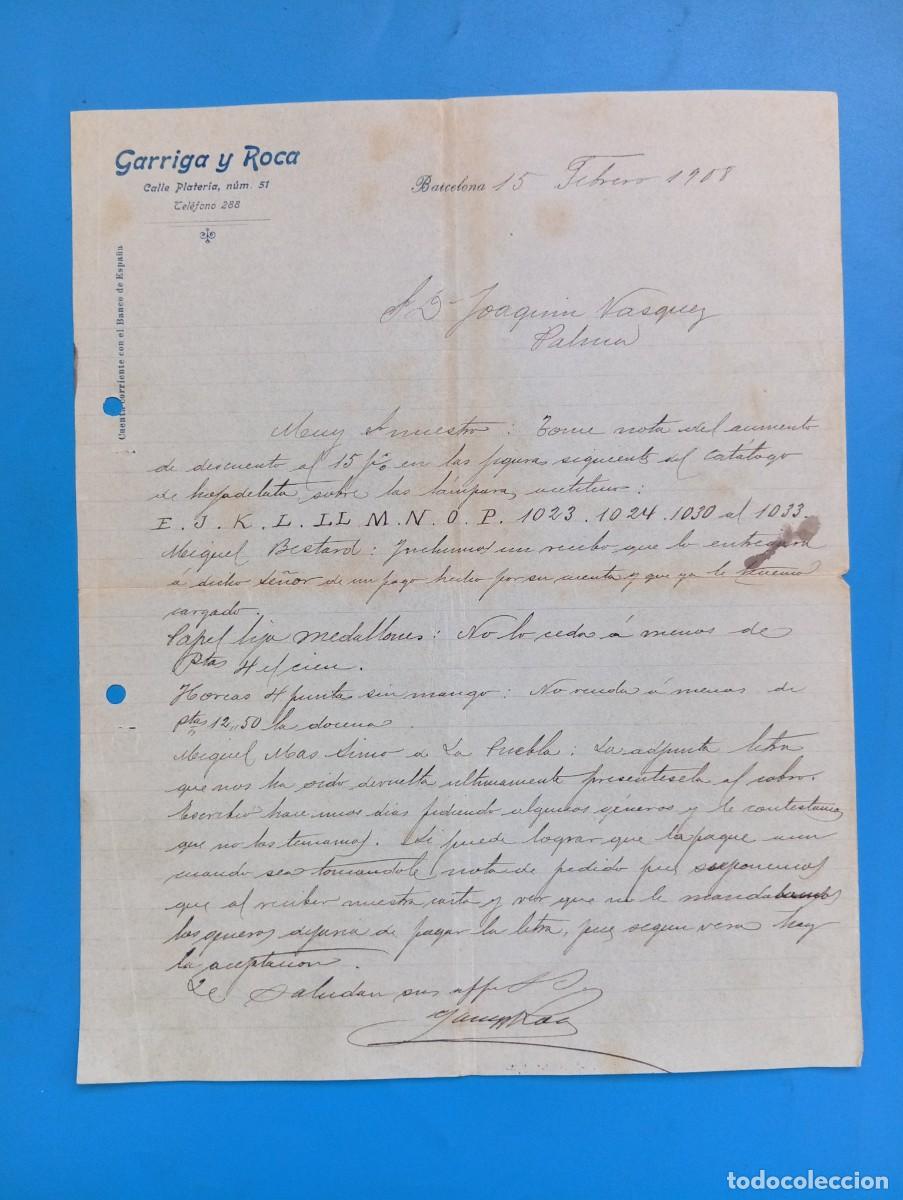 Garriga y Roca
Calle Platería, núm. 51
Teléfono 288
Cuenta corriente con el Banco de España
Barcelona 15 Febrero 1908
Sr Dn Joaquin Vasquez
Palma
Muy Sr nuestro: Tome nota del aumento
de descuento al 15 p% en las figuras siguiente del catálogo
de hojadelata sobre las lámpara
E. J. K. L. LL M. N. O. P. 1023. 1024. 1030 al 1033.
Miguel Bestard: Incluimos un recibo que lo entregara
á dicho Señor de un pago hecho por su cuenta y que ya le tenemos
cargado.
Papel lija medallones: No lo ceda á menos de
Ptas 4 el cien.
Horcas 4 punta sin mango: No venda á menos de
ptas 12,,50 la docena.
Miguel Mas Simo á La Puebla: La adjunta letra
que nos ha sido devuelta ultimamente presentesela al cobro.
Escribio hace unos dias pidiendo algunos géneros y le contestamos
que no los teniamos. Si puede lograr que la pague aun
cuando sea tomandole nota de pedido pues suponemos
que al recibir nuestra carta y ver que no le mandabamos
los generos dejaria de pagar la letra, pues segun vera hay
la aceptacion.
Le saludan sus affs S S